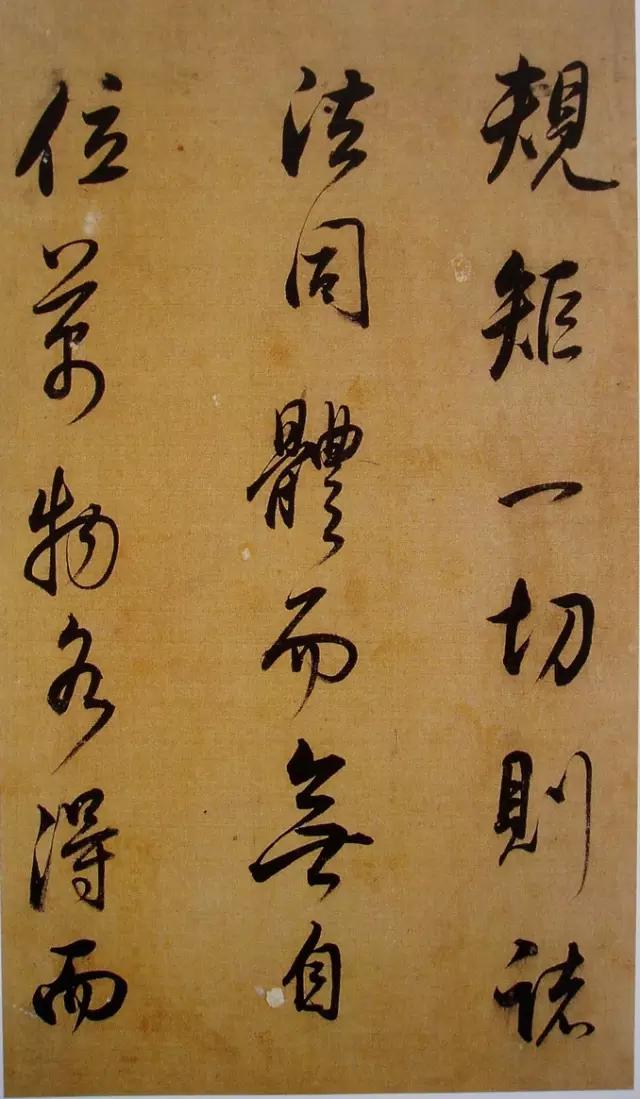 規矩一切則諸
法同體而無自
位萬物各得而